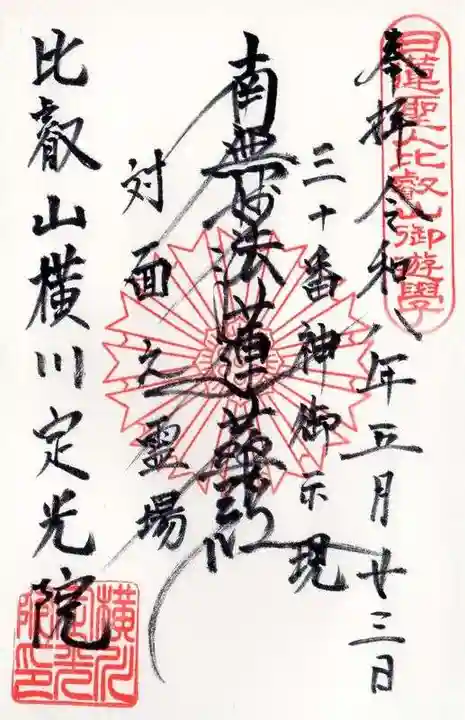 日蓮聖人比叡山御遊學
奉拝 令和八年五月廿三日
三十番神御示現
南無妙法蓮華經
対面之霊場
比叡山横川定光院
横川定光院印